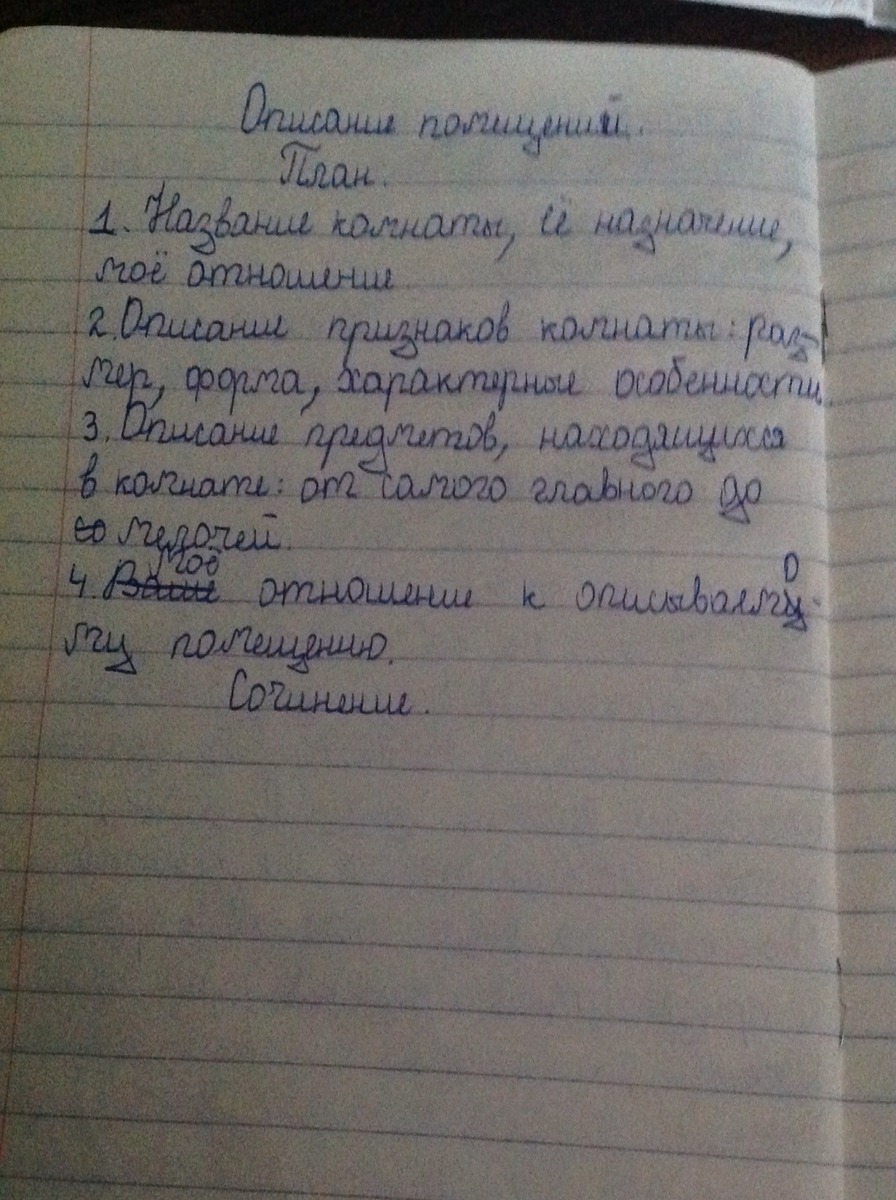 Описание помещений.
План.
1. Название комнаты, её назначение,
моё отношение
2. Описание признаков комнаты: раз-
мер, форма, характерные особенности.
3. Описание предметов, находящихся
в комнате: от самого главного до
мелочей.
моё
4. Ваше отношение к описываемо-
му помещению.
Сочинение.